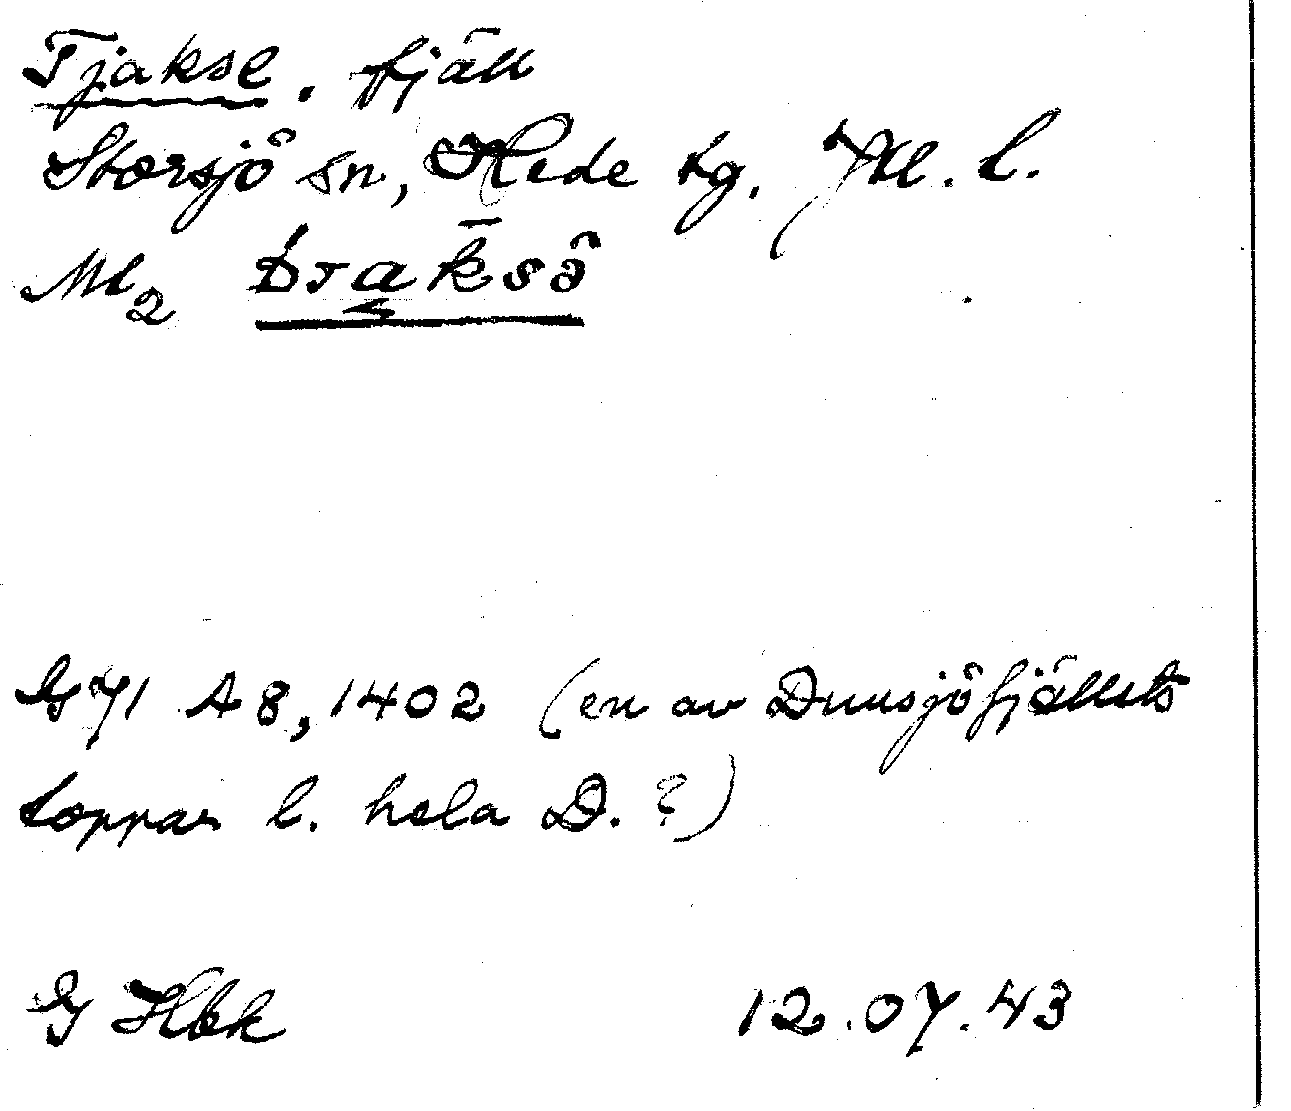 Tjakse. fjäll
Storsjö sn, Hede tg. Jtl. l.
Ml₂
G 71 A8, 1402 (en av Dunsjöfjällets
toppar l. hela D. ?)
G Hbk 12.07.43